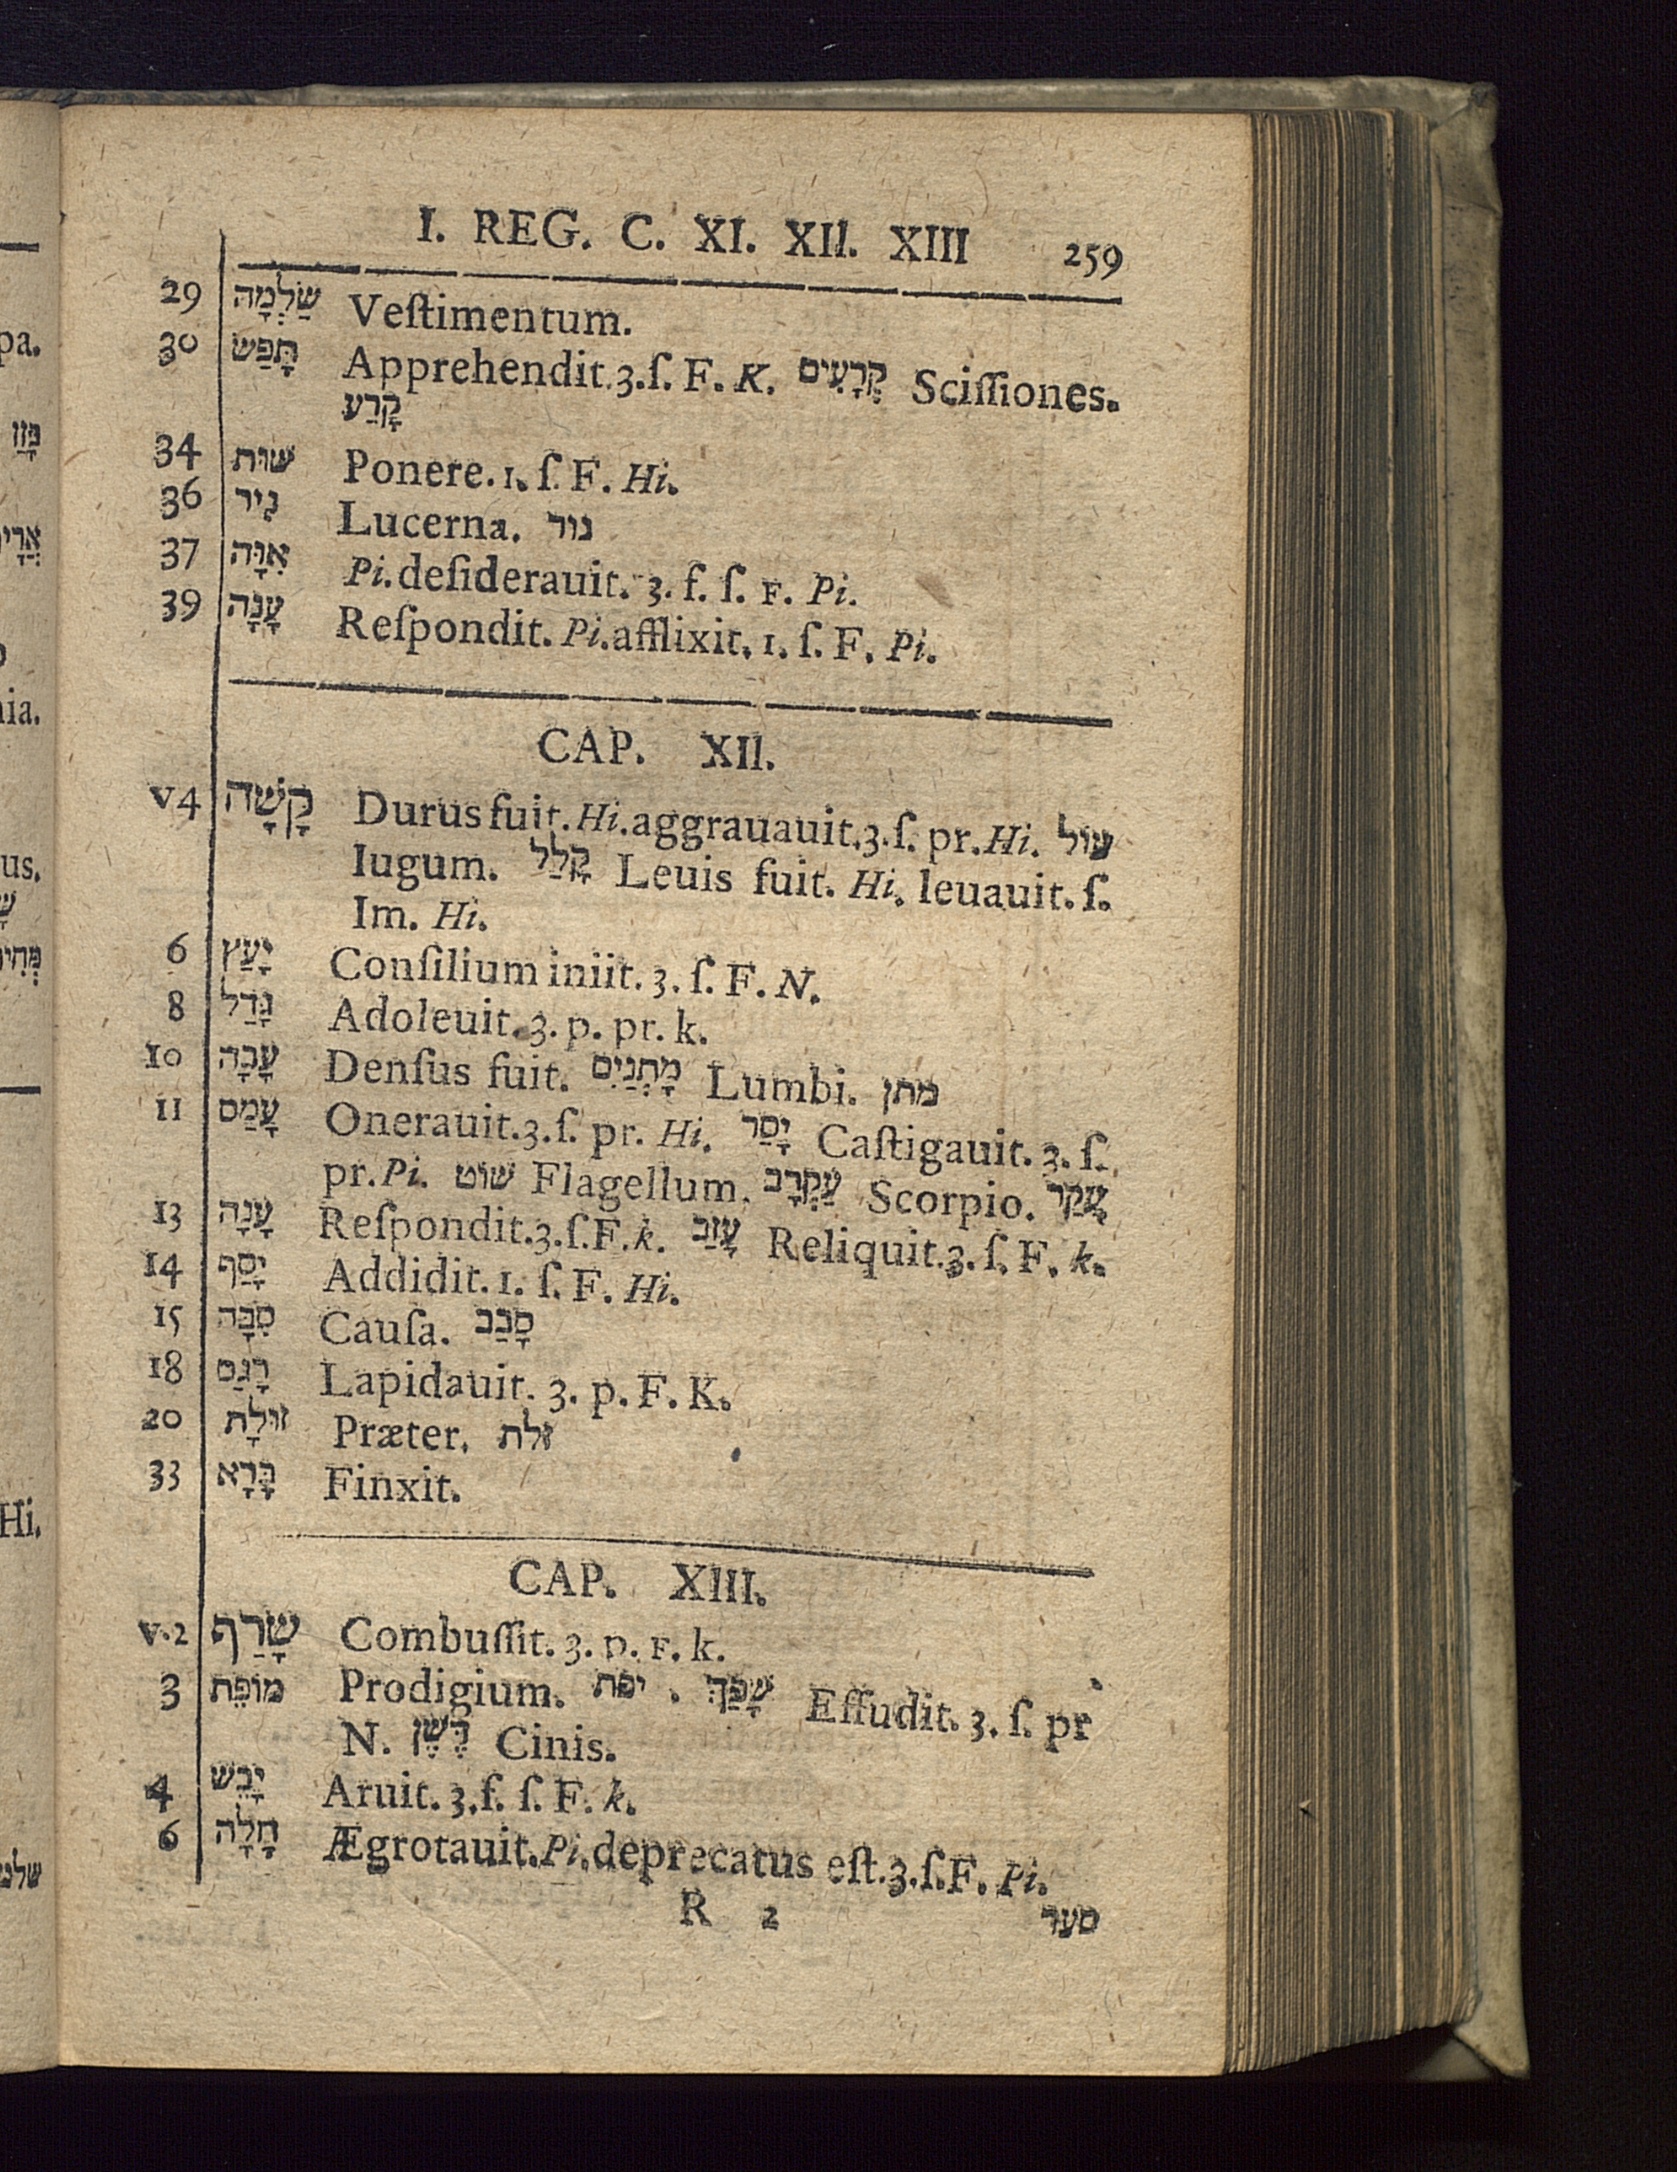 I. REG. C. XI. XII. XIII 259
29 שַׂלְמָה Veſtimentum.
30 תָּפַשׂ Apprehendit.3.ſ. F. K. קְרָעִים Sciſſiones.
קָרַע
34 שׁוּת Ponere. 1. ſ. F. Hi.
36 נִיר Lucerna. נור
37 אִוָּה Pi. deſiderauit. 3. f. ſ. F. Pi.
39 עָנָה Reſpondit. Pi. afflixit. 1. ſ. F. Pi.
CAP. XII.
v4 קָשָׁה Durus fuit. Hi. aggrauauit.3.ſ. pr. Hi. עוֹל
Iugum. קָלַל Leuis fuit. Hi. leuauit. ſ.
Im. Hi.
6 יָעַץ Conſilium iniit. 3. ſ. F. N.
8 גָּדַל Adoleuit. 3. p. pr. k.
10 עָבָה Denſus fuit. מָתְנַיִם Lumbi. מתן
11 עָמַס Onerauit.3.ſ. pr. Hi. יָסַר Caſtigauit. 3. ſ.
pr. Pi. שׁוֹט Flagellum. עַקְרָב Scorpio. עָקַר
13 עָנָה Reſpondit.3.ſ.F.k. עָזַב Reliquit.3.ſ. F. k.
14 יָסַף Addidit. 1. ſ. F. Hi.
15 סִבָּה Cauſa. סָבַב
18 רָגַם Lapidauit. 3. p. F. K.
20 זוּלָת Præter. זלת
33 בָּרָא Finxit.
CAP. XIII.
v.2 שָׂרַף Combuſſit. 3. p. F. k.
3 מוֹפֵת Prodigium. יפת . שָׁפַךְ Effudit. 3. ſ. pr
N. דֶּשֶׁן Cinis.
4 יָבֵשׁ Aruit. 3. f. ſ. F. k.
6 חָלָה Ægrotauit. Pi. deprecatus eſt.3.ſ.F. Pi.
R 2 סער
pa.
nia.
us.
Hi.